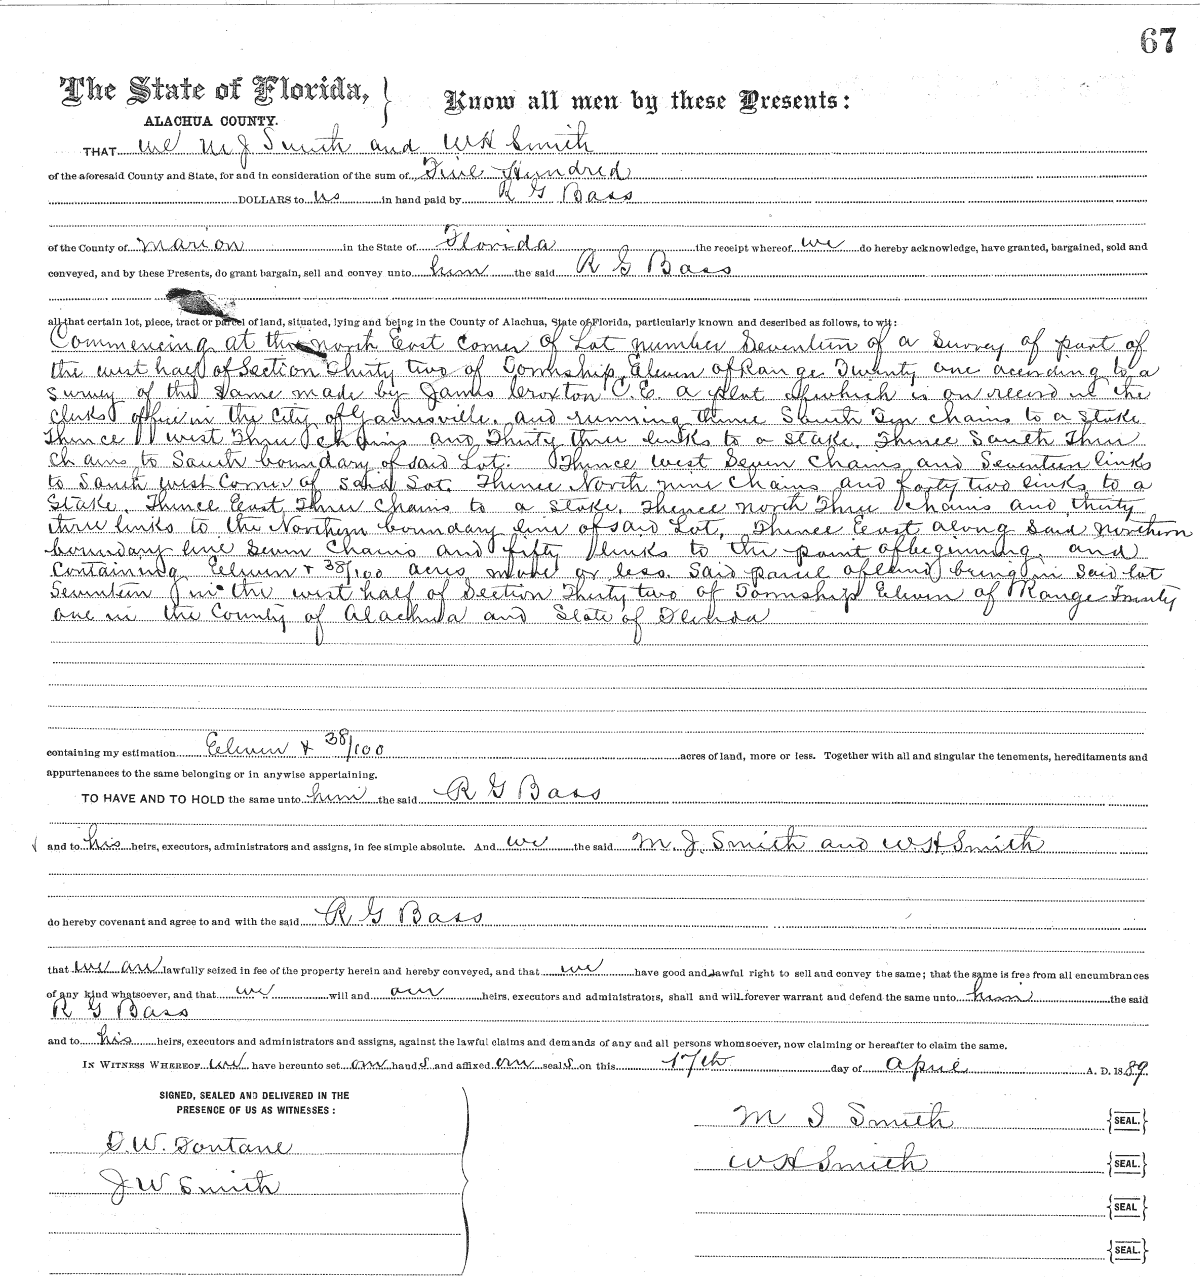 67
The State of Florida,
Know all men by these Presents:
ALACHUA COUNTY.
THAT we M J Smith and W H Smith
of the aforesaid County and State, for and in consideration of the sum of Five Hundred
DOLLARS to us in hand paid by R G Bass
of the County of Marion in the State of Florida the receipt whereof we do hereby acknowledge, have granted, bargained, sold and
conveyed, and by these Presents, do grant bargain, sell and convey unto him the said R G Bass
all that certain lot, piece, tract or parcel of land, situated, lying and being in the County of Alachua, State of Florida, particularly known and described as follows, to wit:
Commencing at the north East corner of Lot number Seventeen of a Survey of part of
the west half of Section Thirty two of Township Eleven of Range Twenty one according to a
Survey of the Same made by James Croxton C.E. a plat of which is on record in the
Clerks office in the City of Gainesville. and running thence South Ten chains to a Stake
Thence west Three chains and Thirty three links to a Stake. Thence South Three
chains to South boundary of said Lot. Thence west Seven chains and Seventeen links
to South west Corner of said Lot. Thence North nine chains and forty two links to a
Stake. Thence East Three Chains to a stake. Thence north Three chains and thirty
three links to the Northern boundary line of said Lot, Thence East along said northern
boundary line Seven Chains and fifty links to the point of beginning and
Containing Eleven + 38/100 acres more or less. Said parcel of land being in said lot
Seventeen in the west half of Section Thirty two of Township Eleven of Range Twenty
one in the County of Alachua and State of Florida
containing my estimation Eleven + 38/100 acres of land, more or less. Together with all and singular the tenements, hereditaments and
appurtenances to the same belonging or in anywise appertaining.
TO HAVE AND TO HOLD the same unto him the said R G Bass
and to his heirs, executors, administrators and assigns, in fee simple absolute. And we the said M. J. Smith and W H Smith
do hereby covenant and agree to and with the said R G Bass
that we are lawfully seized in fee of the property herein and hereby conveyed, and that we have good and lawful right to sell and convey the same; that the same is free from all encumbrances
of any kind whatsoever, and that we will and our heirs, executors and administrators, shall and will forever warrant and defend the same unto him the said
R G Bass
and to his heirs, executors and administrators and assigns, against the lawful claims and demands of any and all persons whomsoever, now claiming or hereafter to claim the same.
IN WITNESS WHEREOF we have hereunto set our hands and affixed our seals on this 17th day of April A. D. 1889.
SIGNED, SEALED AND DELIVERED IN THE
PRESENCE OF US AS WITNESSES:
M J Smith {SEAL.}
D.W. Fontane
W H Smith {SEAL.}
J W Smith
{SEAL}
{SEAL.}